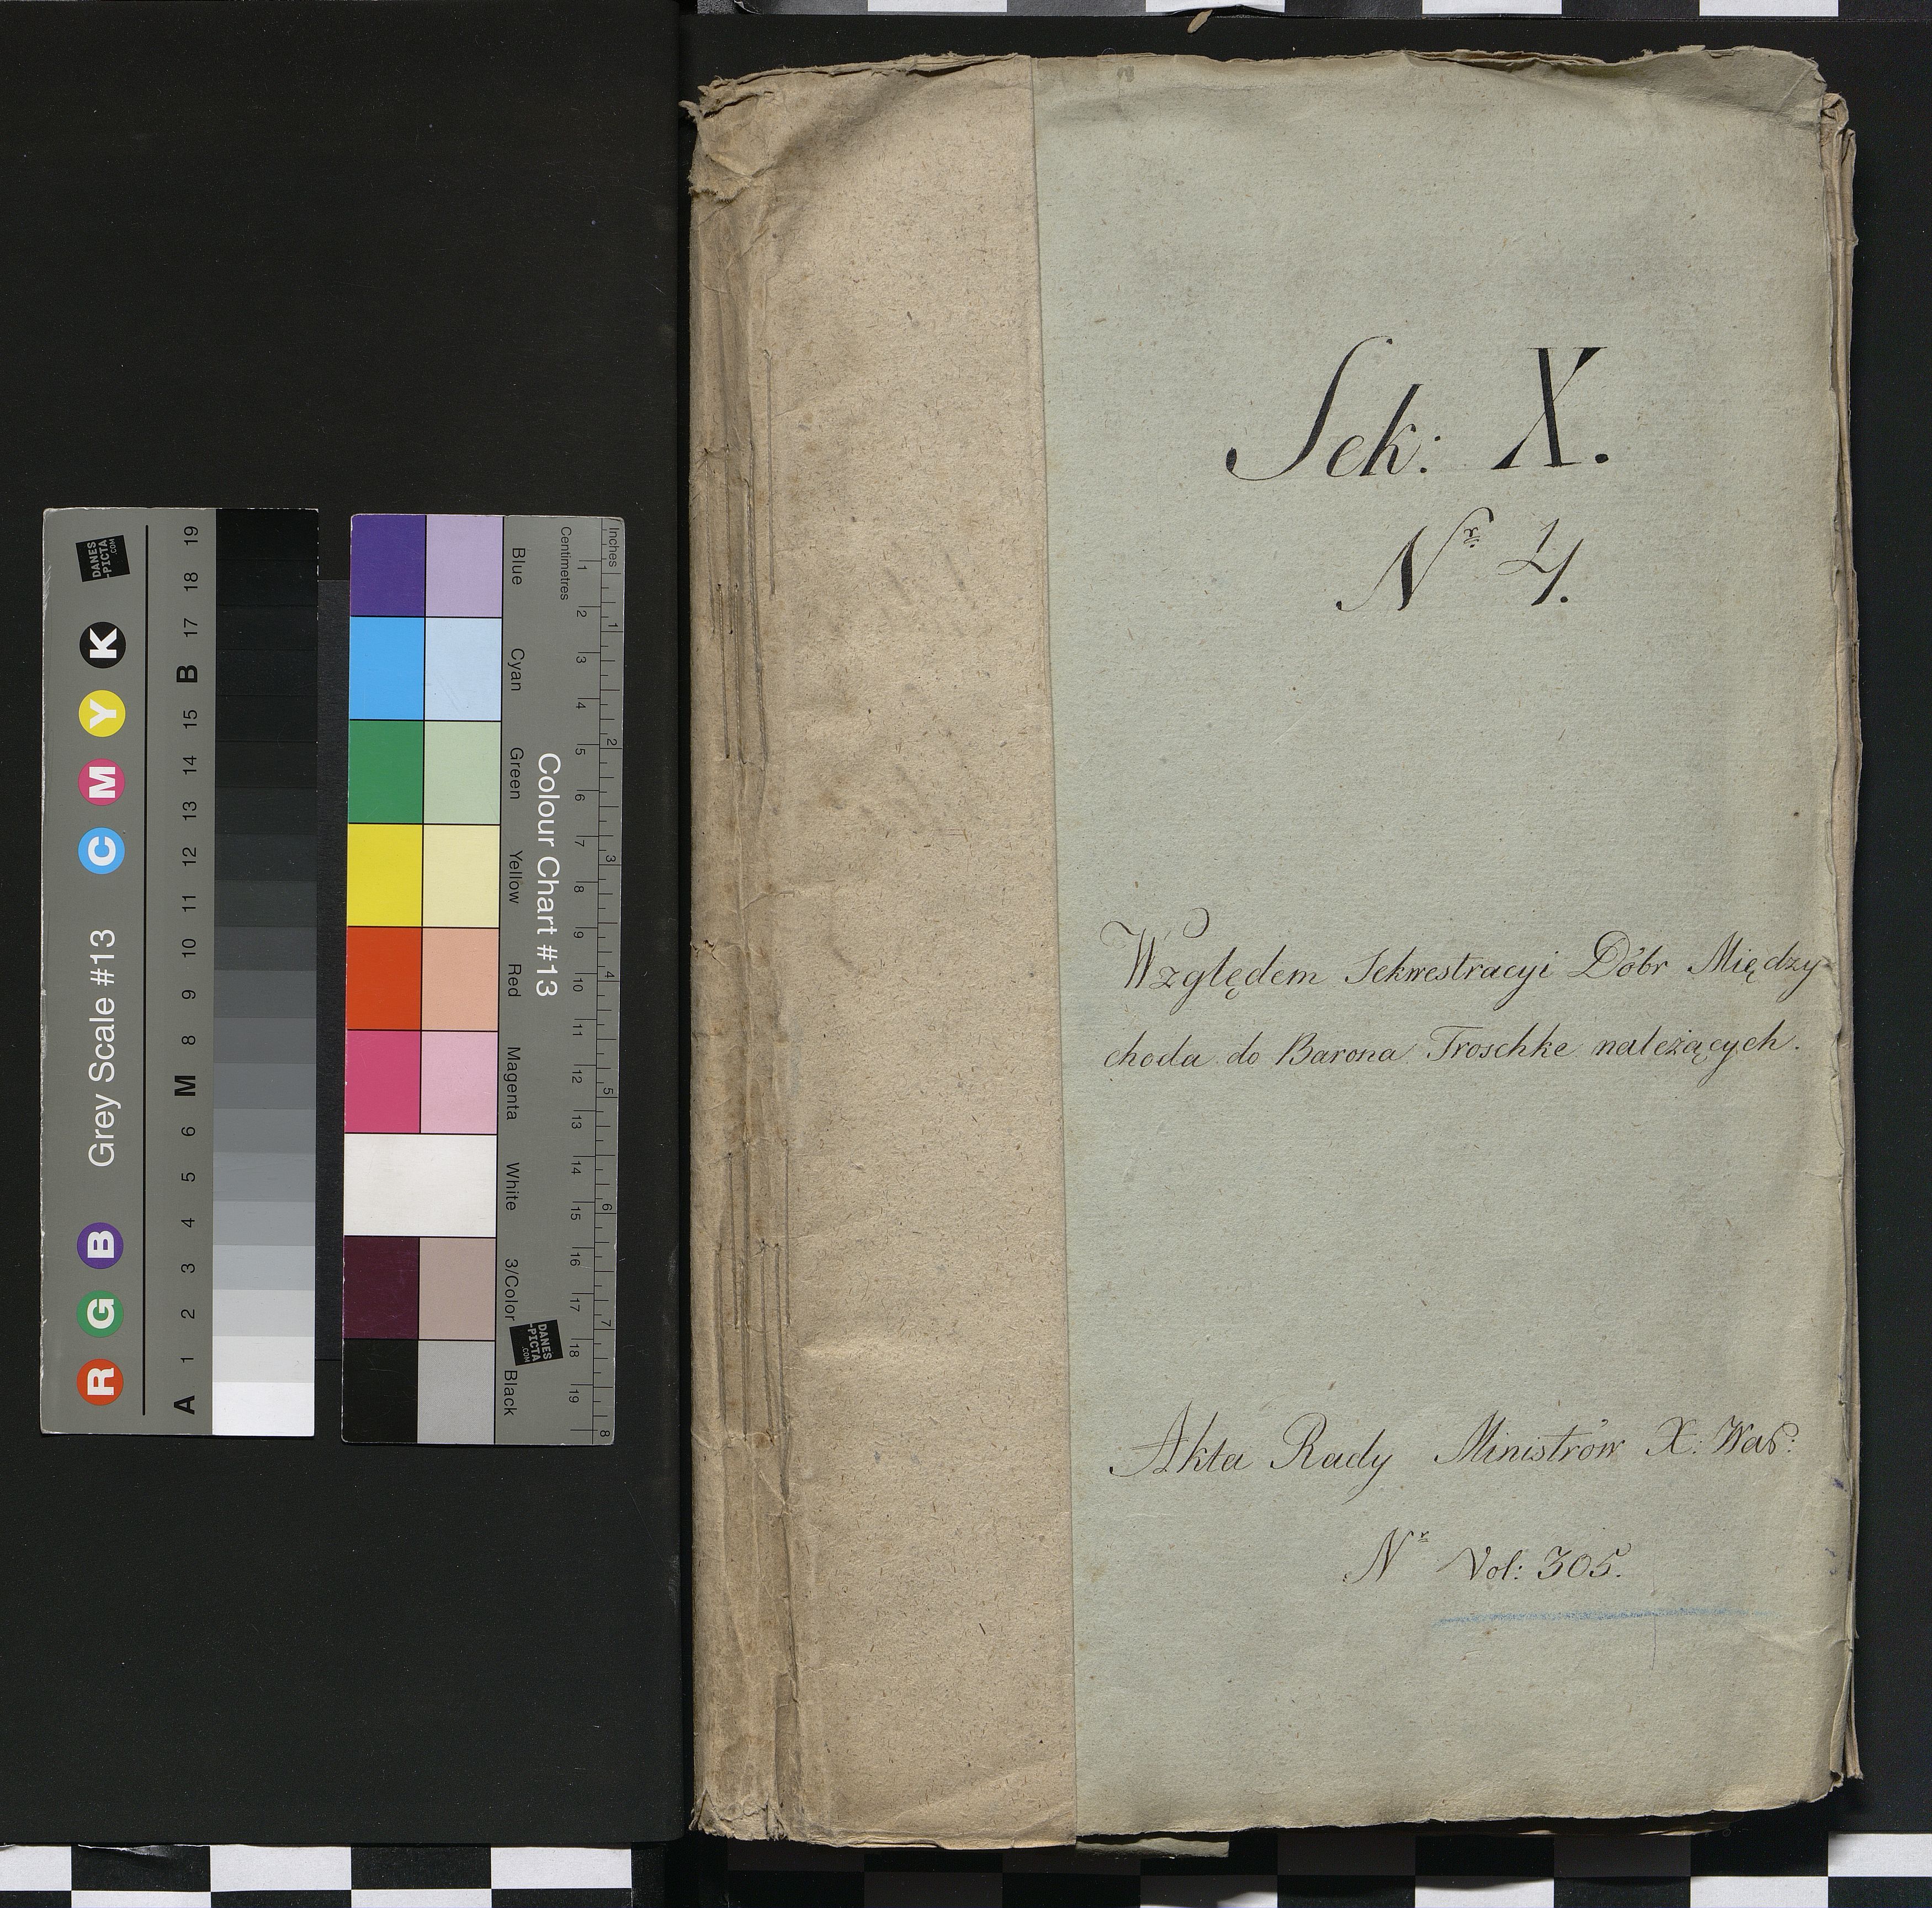 Sek: X.
Nr 4.
Względem Sekwestracyi Dóbr Między-
choda do Barona Troschke należących.
Akta Rady Ministrów X: Wars:
Nr Vol: 305.
Grey Scale #13
R G B C M Y K
A 1 2 3 4 5 6 M 8 9 10 11 12 13 14 15 B 17 18 19
DANES
-PICTA
.COM
Colour Chart #13
Blue
Cyan
Green
Yellow
Red
Magenta
White
3/Color
Black
Centimetres
1 2 3 4 5 6 7 8 9 10 11 12 13 14 15 16 17 18 19
Inches
1 2 3 4 5 6 7 8
DANES
-PICTA
.COM